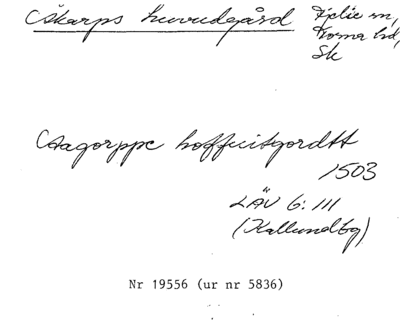 Åkarps huvudgård Fjelie sn,
Torna hd,
Sk
Aagorppe hoffuitgordtt
1503
LÄU 6: 111
(Kallundbg)
Nr 19556 (ur nr 5836)